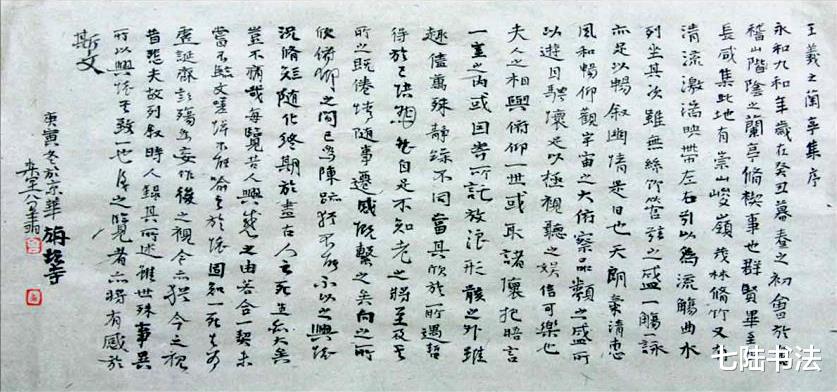 王羲之蘭亭集序
永和九年歲在癸丑暮春之初會於
稽山階陰之蘭亭脩禊事也群賢畢至
長咸集此地有崇山峻嶺茂林脩竹又有
清流激湍映帶左右引以為流觴曲水
列坐其次雖無絲竹管弦之盛一觴一詠
亦足以暢敘幽情是日也天朗氣清惠
風和暢仰觀宇宙之大俯察品類之盛所
以遊目騁懷足以極視聽之娛信可樂也
夫人之相與俯仰一世或取諸懷抱晤言
一室之內或因寄所託放浪形骸之外雖
趣舍萬殊靜躁不同當其欣於所遇暫
得於己快然自足不知老之將至及其
所之既倦情隨事遷感慨繫之矣向之所
欣俯仰之間已為陳跡猶不能不以之興懷
況脩短隨化終期於盡古人云死生亦大矣
豈不痛哉每覽昔人興感之由若合一契未
嘗不臨文嗟悼不能喻之於懷固知一死生為
虛誕齊彭殤為妄作後之視今亦猶今之視
昔悲夫故列敘時人錄其所述雖世殊事異
所以興懷其致一也後之覽者亦將有感於
斯文
庚寅冬於京華
七陆书法